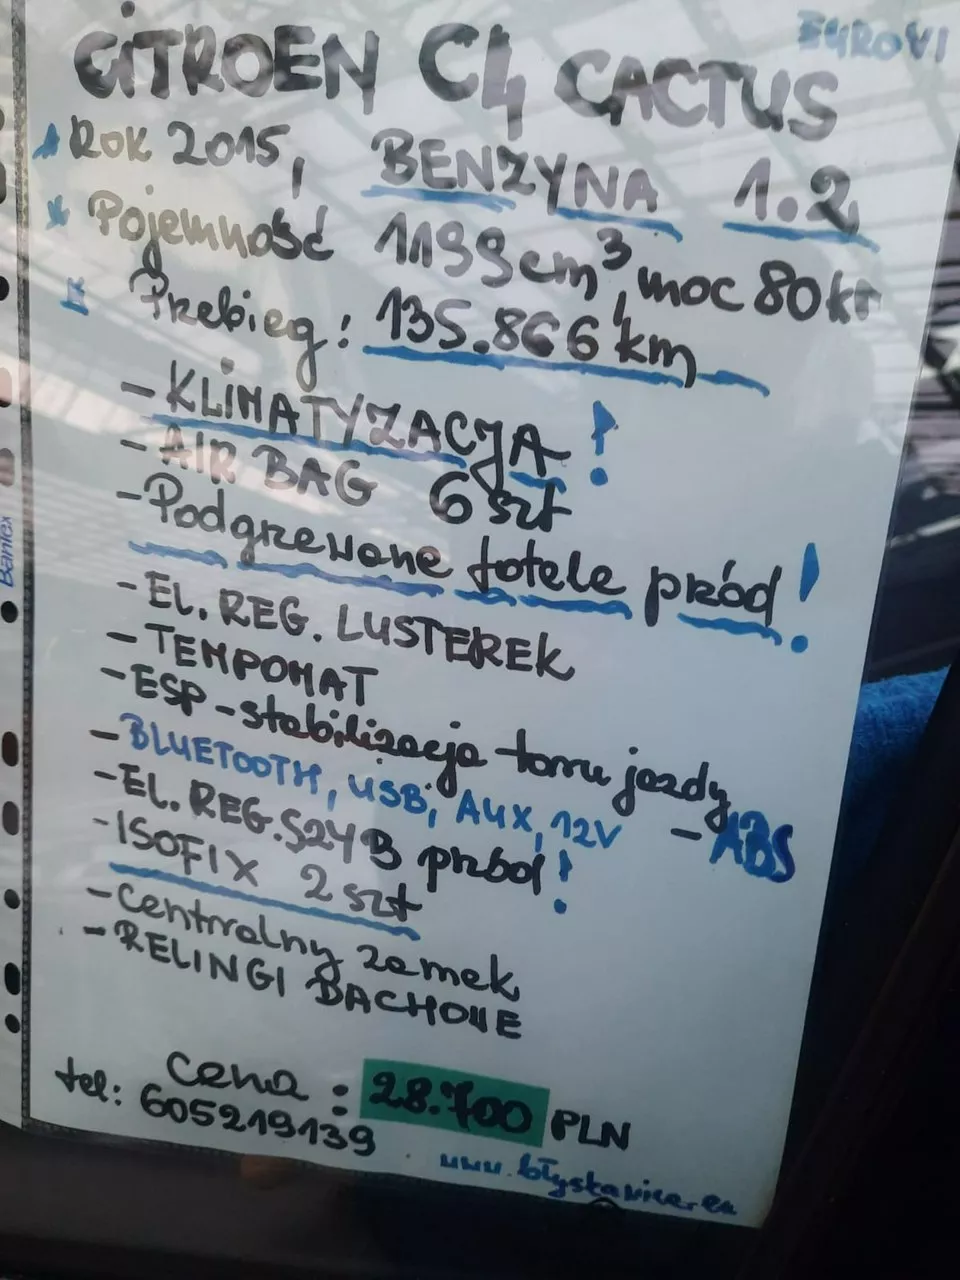 CITROEN C4 CACTUS
EUROVI
Rok 2015, BENZYNA 1.2
Pojemność 1199cm³, moc 80kr
Przebieg: 135.866 km
- KLIMATYZACJA!
- AIR BAG 6 szt
- Podgrzewane fotele przód!
- EL. REG. LUSTEREK
- TEMPOMAT
- ESP - stabilizacja toru jazdy
- BLUETOOTH, USB, AUX, 12V - ABS
- EL. REG. SZYB przód!
- ISOFIX 2 szt
- Centralny zamek
- RELINGI DACHOWE
Cena: 28.700 PLN
tel: 605219139
Bantex